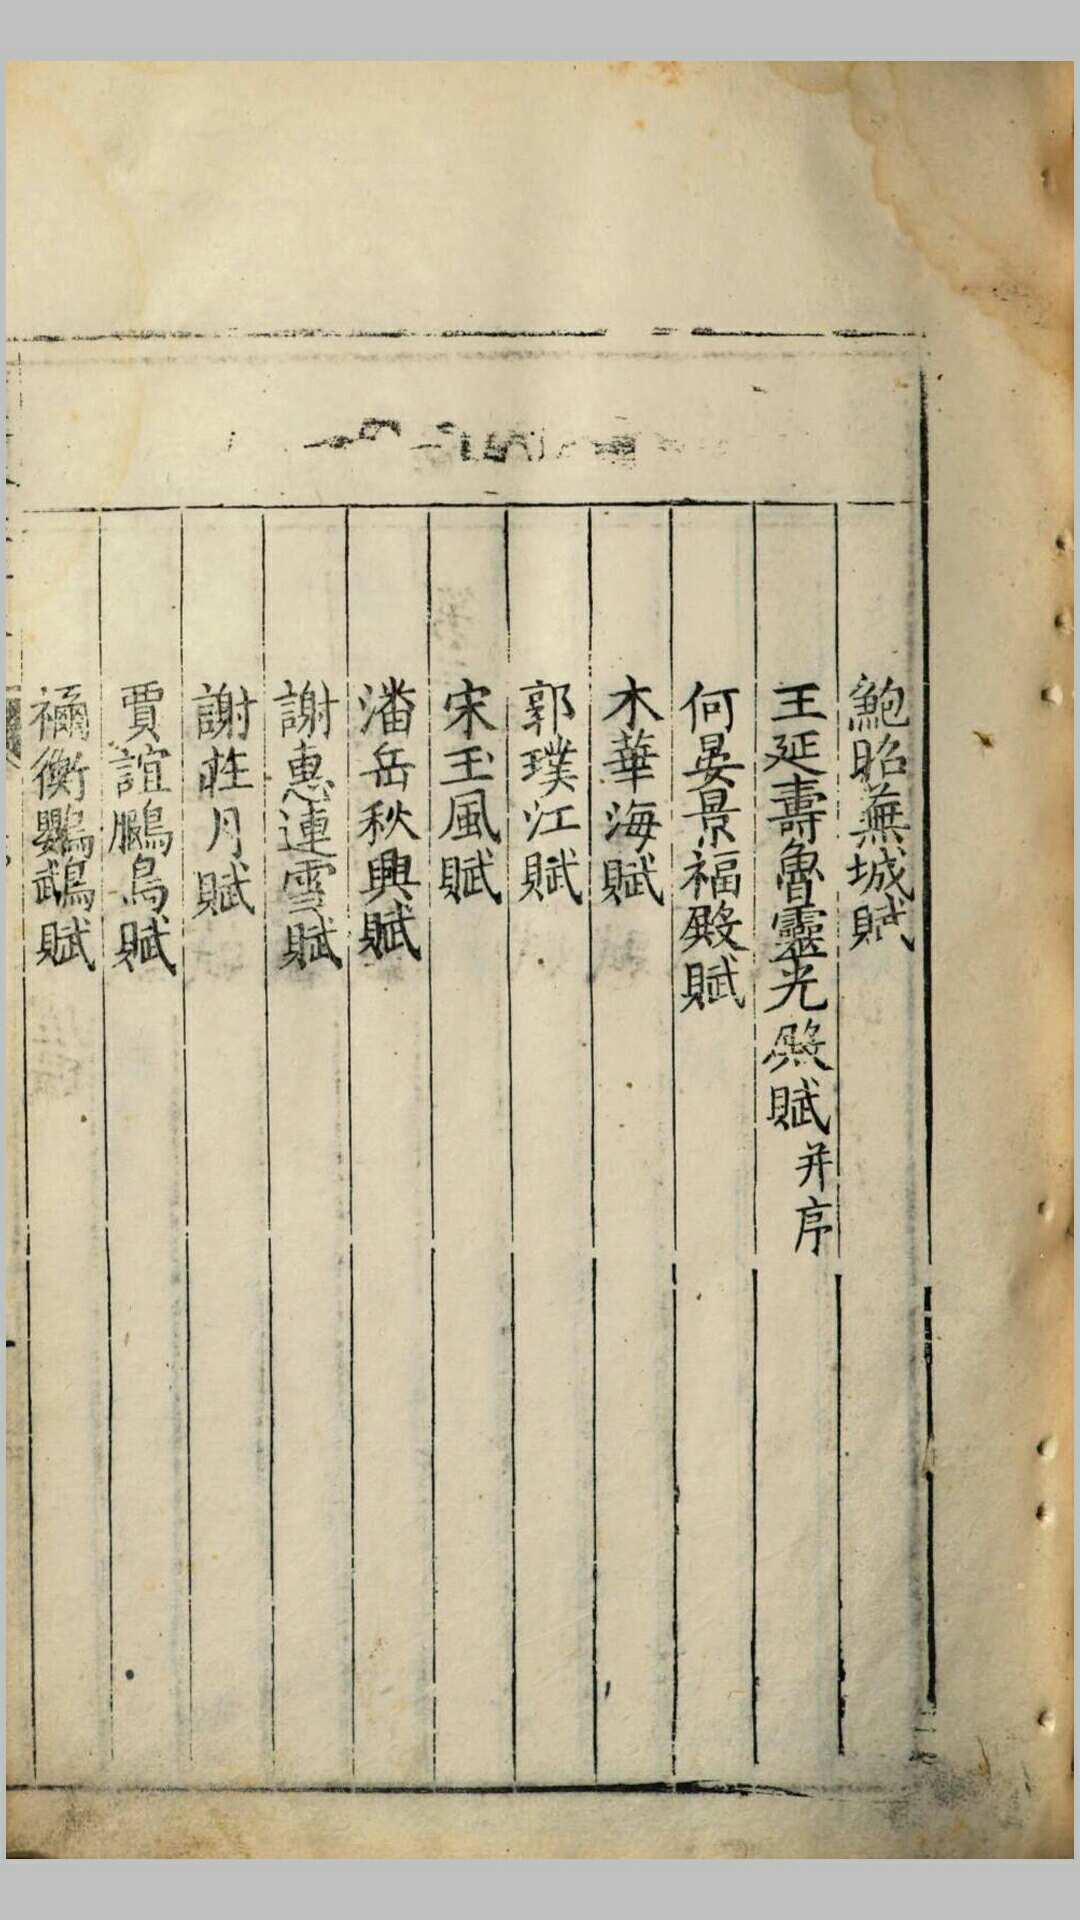 鮑昭蕪城賦
王延壽魯靈光殿賦并序
何晏景福殿賦
木華海賦
郭璞江賦
宋玉風賦
潘岳秋興賦
謝惠連雪賦
謝莊月賦
賈誼鵩鳥賦
禰衡鸚鵡賦